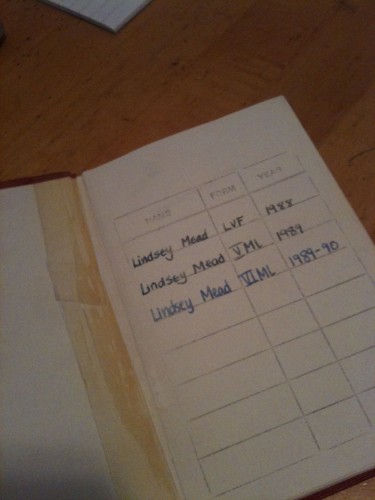 NAME FORM YEAR
Lindsey Mead LVF 1988
Lindsey Mead VML 1989
Lindsey Mead VIML 1989-90